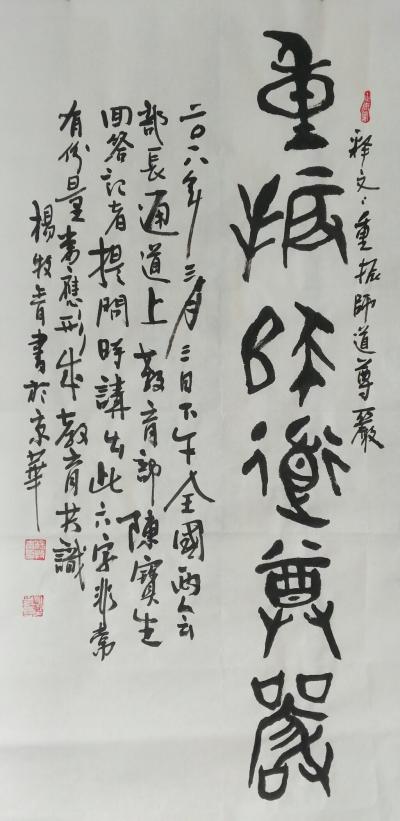 释文:重振師道尊嚴
重振師道尊嚴
二〇一八年三月三日下午全國两会
部長通道上教育部陳寶生
回答記者提問時講出此六字非常
有份量應形成教育共識
楊牧青書於京華